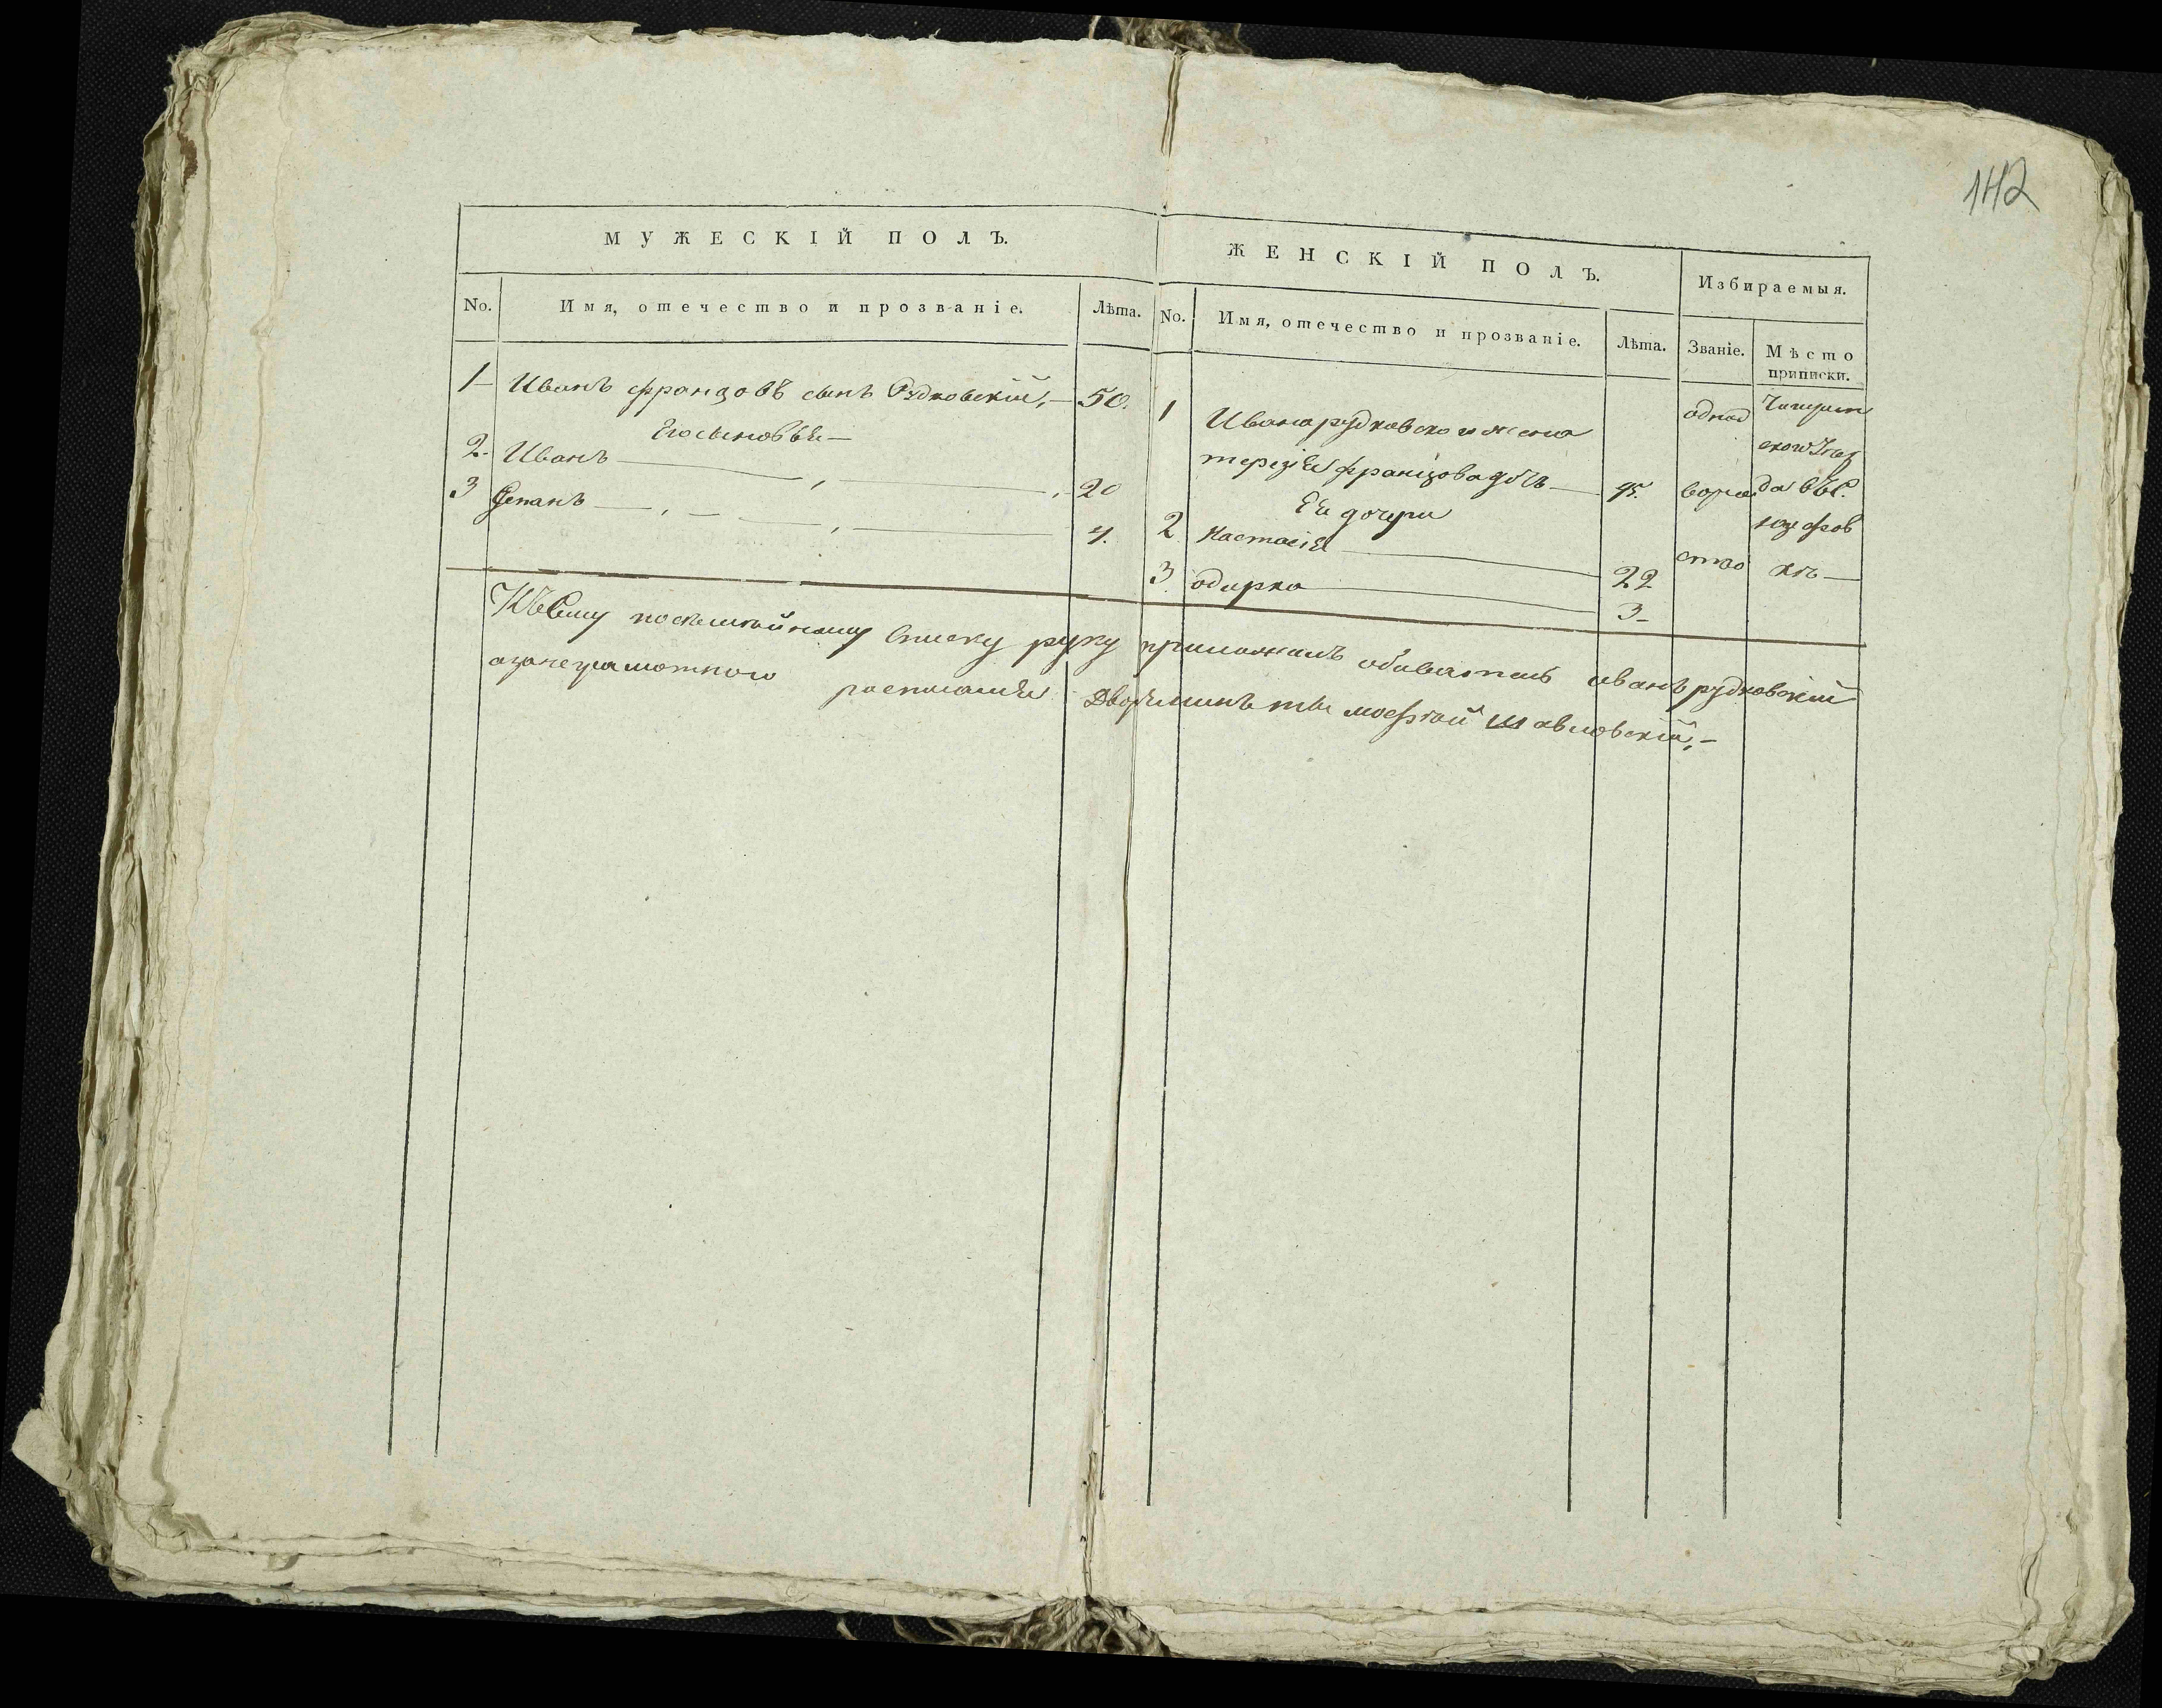 142
МУЖЕСКІЙ ПОЛЪ.
No. Имя, отечество и прозваніе. Лѣта.
1 Иванъ францовъ сынъ Рудковскій, 50.
Его сыновья
2. Иванъ 20
3 Степанъ 4.
ЖЕНСКІЙ ПОЛЪ.
No. Имя, отечество и прозваніе. Лѣта.
1 Ивана рудковского жена
терезія францова дочь 45.
Ея дочери
2 Настасія 22
3. 3
Избираемыя.
Званіе. Мѣсто приписки.
однод
ворче
ство
Чигирин
ского
да въ С.
юзефов
кѣ
Къ сему посемейному Списку руку приложилъ обыватель иванъ рудковскій
а за неграмотного росписался Дворянинъ шавловскій,